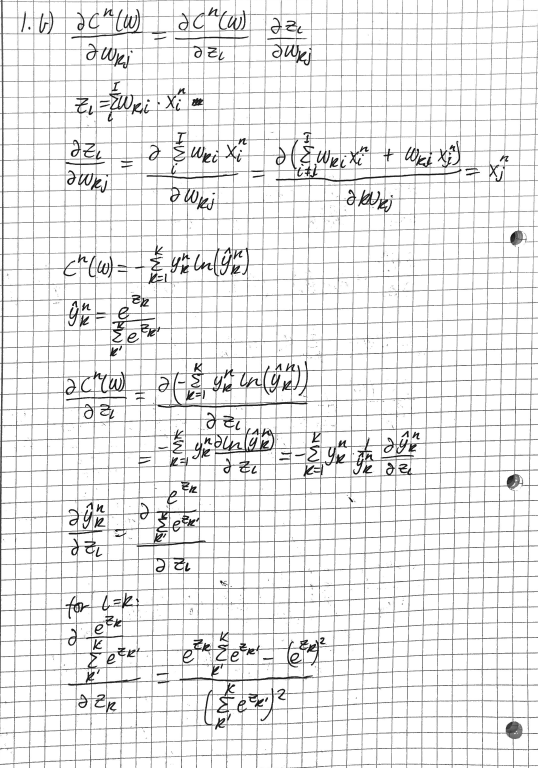 1. b) ∂Cⁿ(w)/∂w_kj = ∂Cⁿ(w)/∂z_l ∂z_l/∂w_kj
z_l = Σ_i^I w_ki · x_i^n
∂z_l/∂w_kj = ∂ Σ_i^I w_ki x_i^n / ∂w_kj = ∂(Σ_{i≠j}^I w_ki x_i^n + w_kj x_j^n) / ∂w_kj = x_j^n
Cⁿ(w) = - Σ_{k=1}^K y_k^n ln(ŷ_k^n)
ŷ_k^n = e^{z_k} / Σ_{k'}^K e^{z_k'}
∂Cⁿ(w)/∂z_l = ∂(- Σ_{k=1}^K y_k^n ln(ŷ_k^n)) / ∂z_l
= - Σ_{k=1}^K y_k^n ∂ln(ŷ_k^n)/∂z_l = - Σ_{k=1}^K y_k^n · 1/ŷ_k^n ∂ŷ_k^n/∂z_l
∂ŷ_k^n/∂z_l = ∂ (e^{z_k} / Σ_{k'}^K e^{z_k'}) / ∂z_l
for l=k:
∂ (e^{z_k} / Σ_{k'}^K e^{z_k'}) / ∂z_k = (e^{z_k} Σ_{k'}^K e^{z_k'} - (e^{z_k})²) / (Σ_{k'}^K e^{z_k'})²